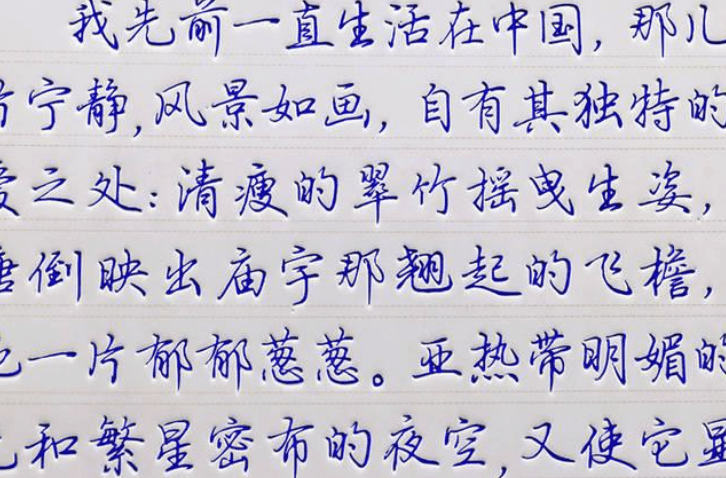 我先前一直生活在中国，那儿
宁静，风景如画，自有其独特的
之处：清瘦的翠竹摇曳生姿，
倒映出庙宇那翘起的飞檐，
一片郁郁葱葱。亚热带明媚的
和繁星密布的夜空，又使它显